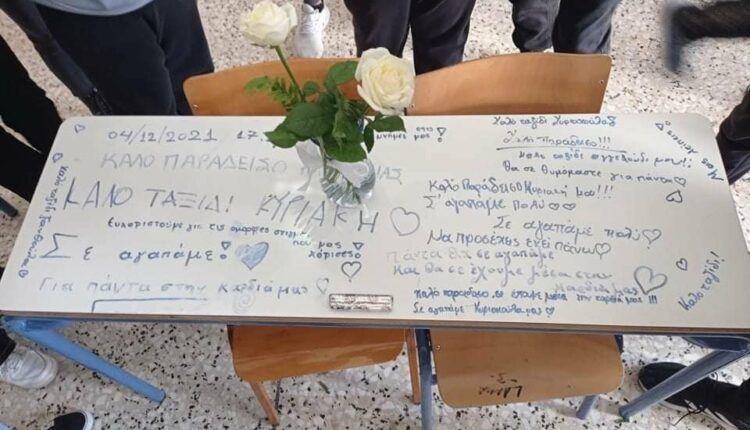 04/12/2021 17
ΚΑΛΟ ΠΑΡΑΔΕΙΣΟ
ΚΑΛΟ ΤΑΞΙΔΙ ΚΥΡΙΑΚΗ
Ευχαριστούμε για τις όμορφες στιγμές
που μας
χάρισες
Σε αγαπάμε!
Για πάντα στην καρδιά μας
στο
μυαλό μας
Καλό ταξίδι
Στον παράδεισο!!!
Καλό ταξίδι αγγελούδι μου!!
Θα σε θυμόμαστε για πάντα
Μας λείπεις
Καλό Παράδεισο Κυριακή μου!!!
Σ'αγαπάμε πολύ
Σε αγαπάμε πολύ
Να προσέχεις εκεί πάνω
Πάντα θα σε αγαπάμε
και θα σε έχουμε μέσα στην
καρδιά μας
Καλό παράδεισο, σε έχουμε μέσα την καρδιά μας!!!
Σε αγαπάμε Κυριακούλα μας
Καλό ταξίδι!